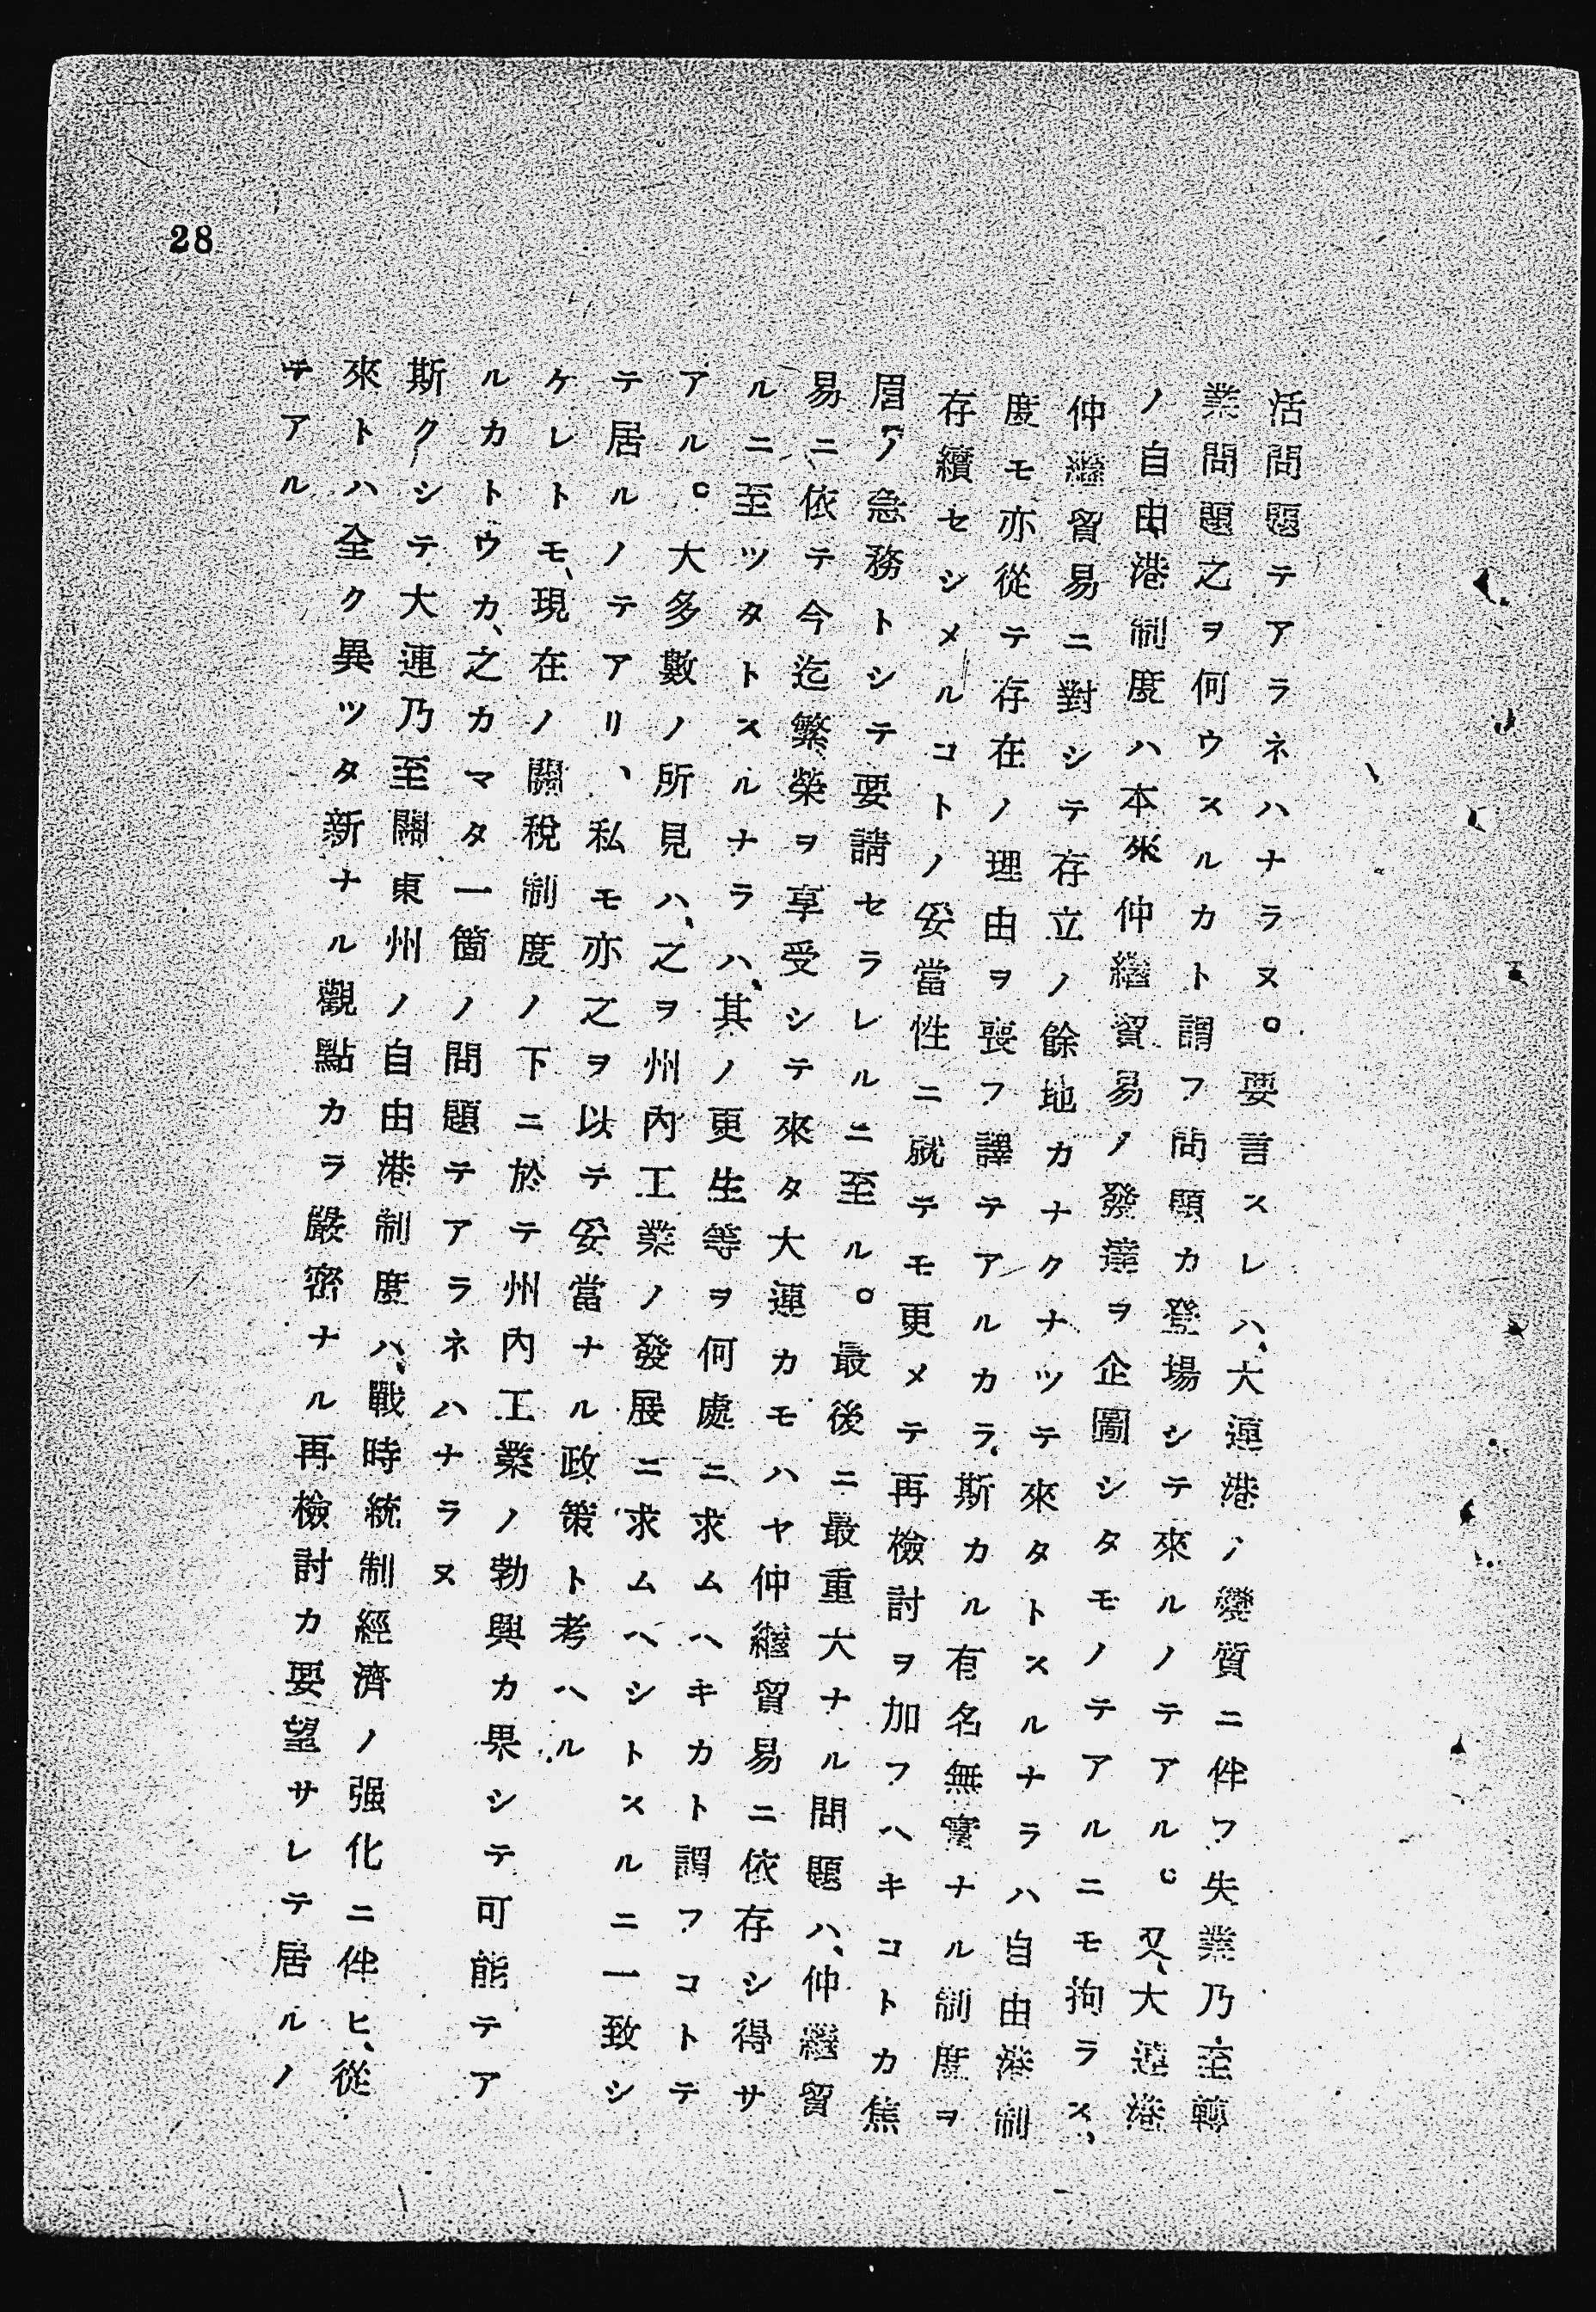 活問題テアラネハナラヌ。要言スレハ、大連港ノ變質ニ伴フ失業乃至轉
業問題之ヲ何ウスルカト謂フ問題カ登場シテ來ルノテアル。又、大連港
ノ自由港制度ハ本來仲繼貿易ノ發達ヲ企圖シタモノテアルニモ拘ラス、
仲繼貿易ニ對シテ存立ノ餘地カナクナツテ來タトスルナラハ自由港制
度モ亦從テ存在ノ理由ヲ喪フ譯テアルカラ、斯カル有名無實ナル制度ヲ
存續セシメルコトノ妥當性ニ就テモ更メテ再檢討ヲ加フヘキコトカ焦
眉ノ急務トシテ要請セラレルニ至ル。最後ニ最重大ナル問題ハ、仲繼貿
易ニ依テ今迄繁榮ヲ享受シテ來タ大連カモハヤ仲繼貿易ニ依存シ得サ
ルニ至ツタトスルナラハ、其ノ更生等ヲ何處ニ求ムヘキカト謂フコトテ
アル。大多數ノ所見ハ、之ヲ州內工業ノ發展ニ求ムヘシトスルニ一致シ
テ居ルノテアリ、私モ亦之ヲ以テ妥當ナル政策ト考ヘル
ケレトモ、現在ノ關稅制度ノ下ニ於テ州內工業ノ勃興カ果シテ可能テア
ルカトウカ、之カマタ一箇ノ問題テアラネハナラヌ
斯クシテ大連乃至關東州ノ自由港制度ハ、戰時統制經濟ノ强化ニ伴ヒ、從
來トハ全ク異ツタ新ナル觀點カラ嚴密ナル再檢討カ要望サレテ居ルノ
テアル
28